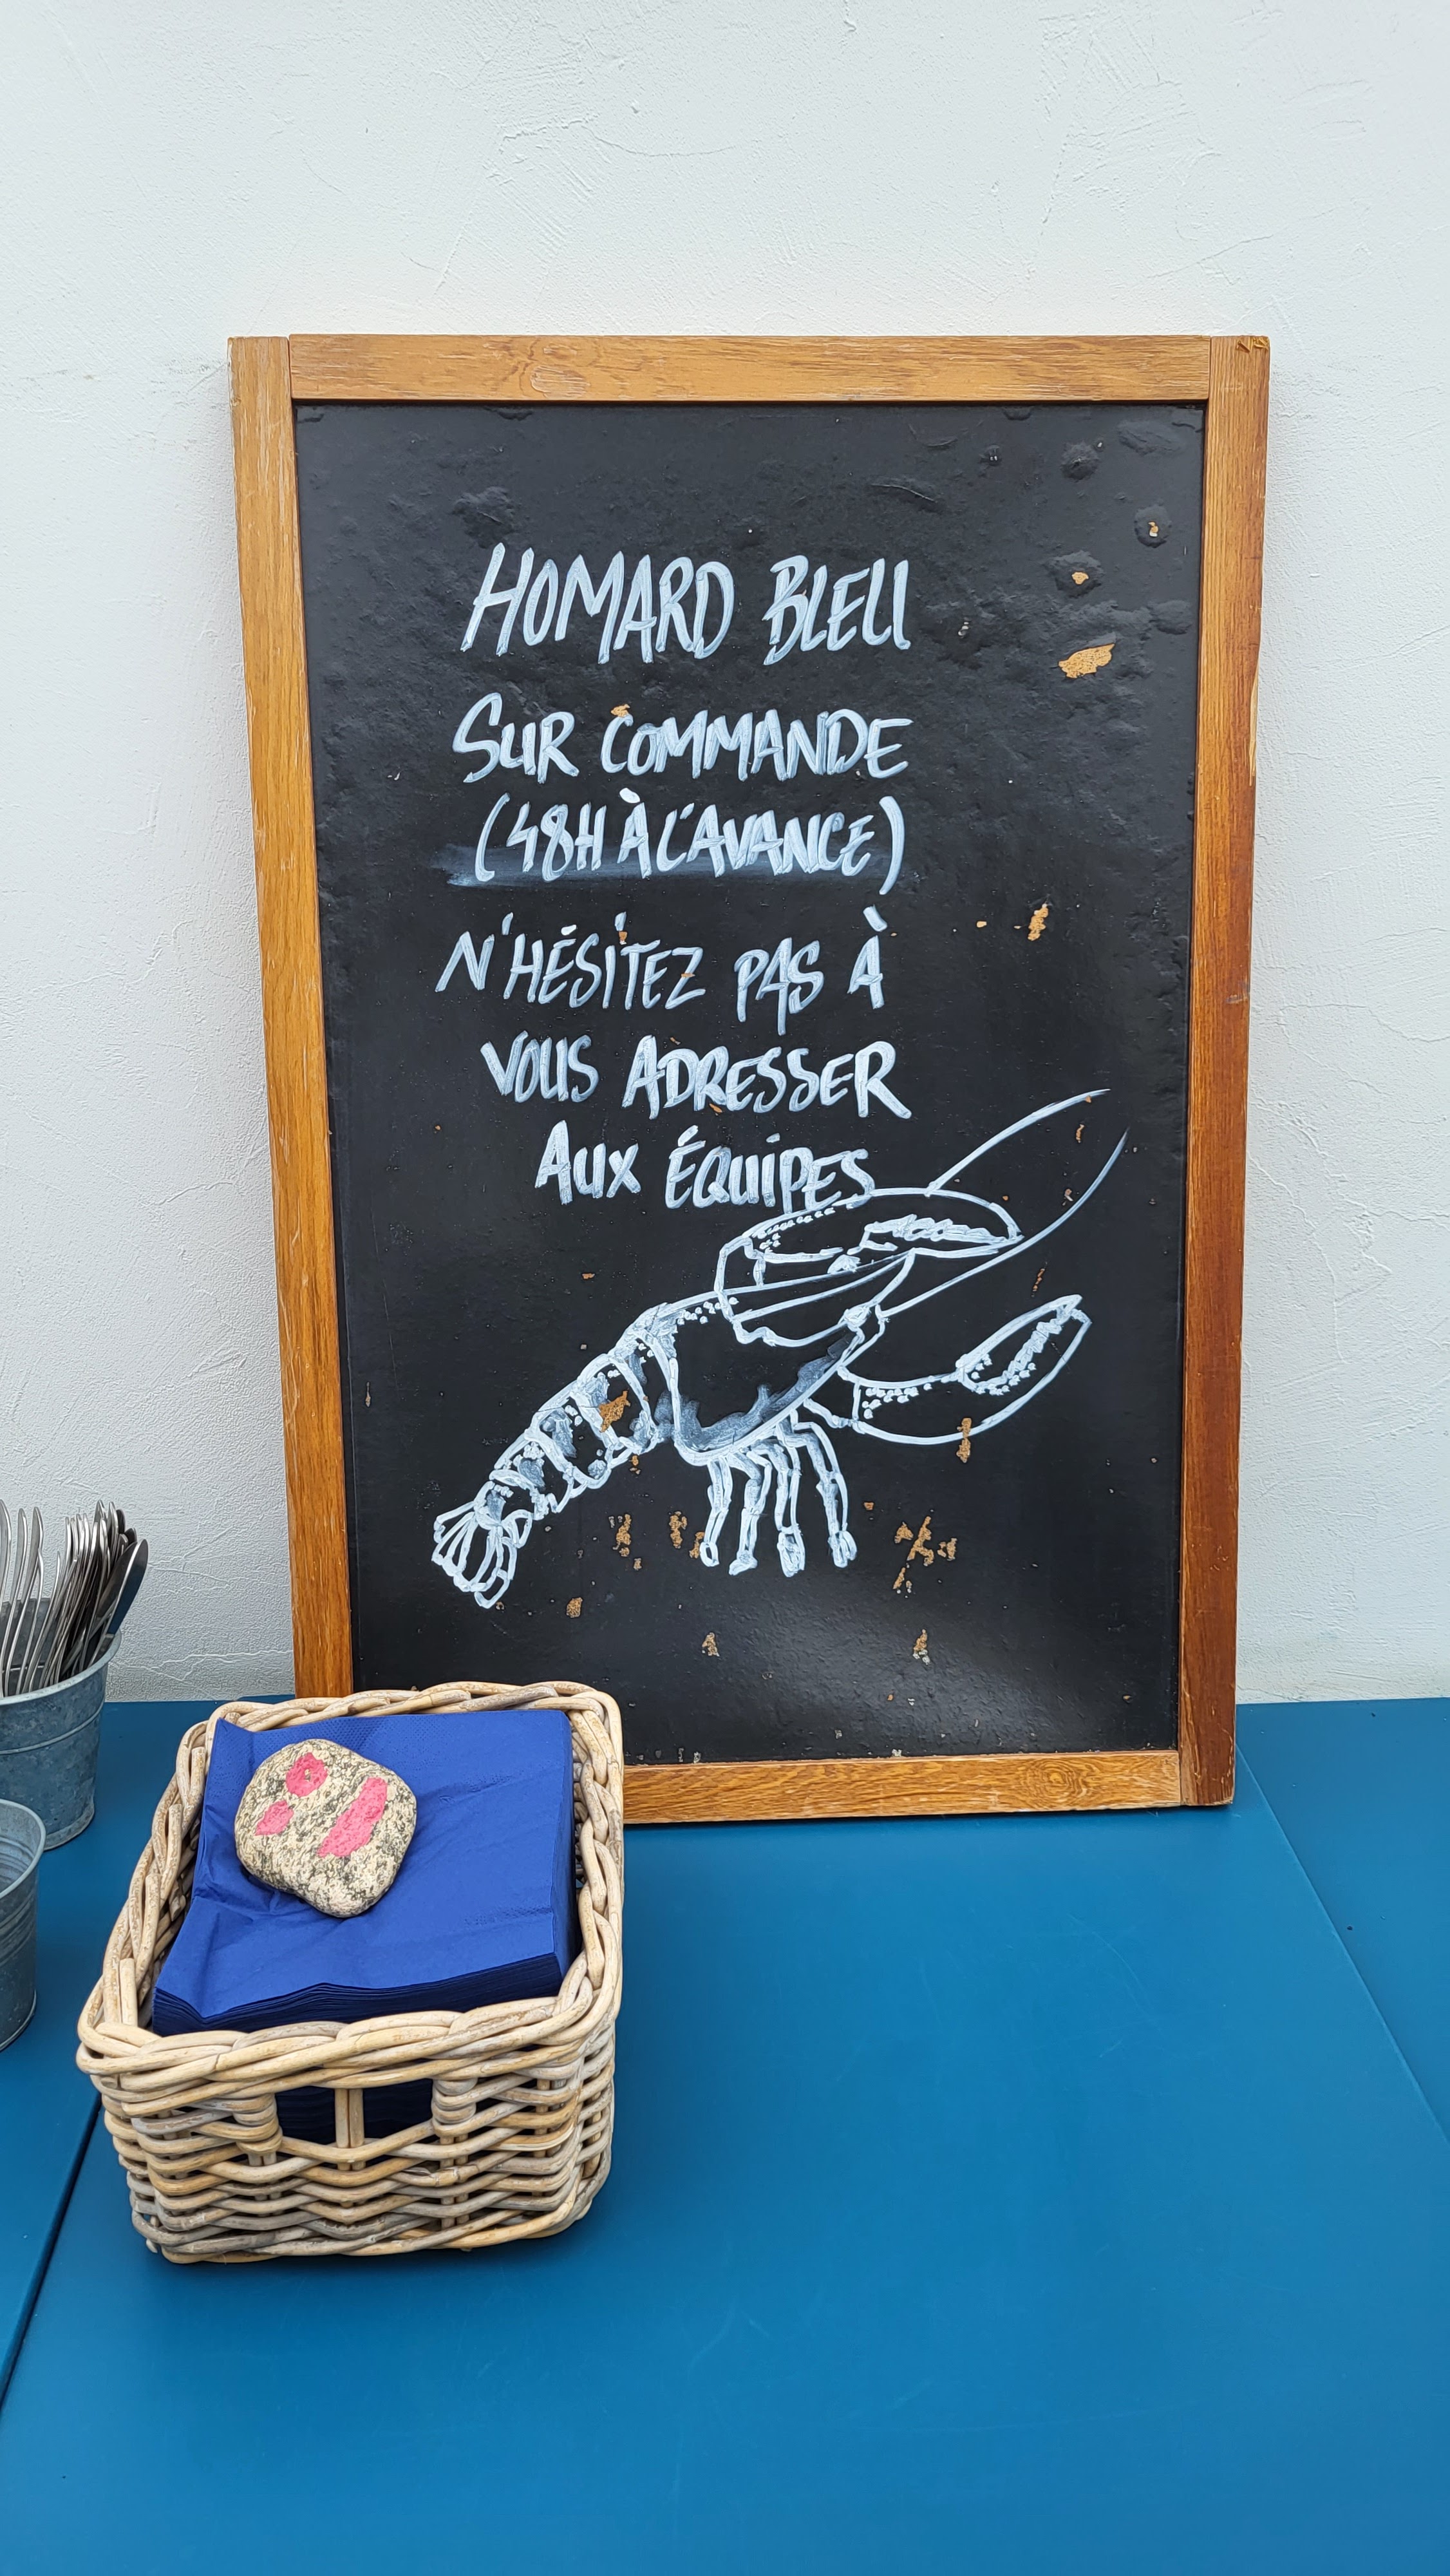 HOMARD BLEU
SUR COMMANDE
(48H À L'AVANCE)
N'HÉSITEZ PAS À
VOUS ADRESSER
AUX ÉQUIPES